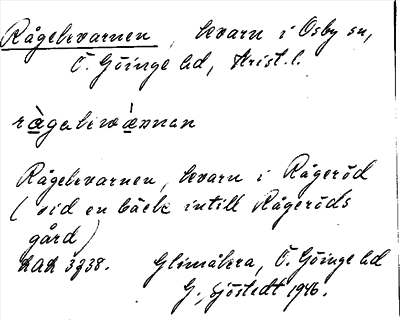 Rågekvarnen, kvarn i Osby sn,
Ö. Göinge hd, Krist. l.
ràgekwànnan
Rågekvarnen, kvarn i Rågeröd
(vid en bäck intill Rågeröds
gård)
LAL 3738. Glimåkra, Ö. Göinge hd
G. Sjöstedt 1946.